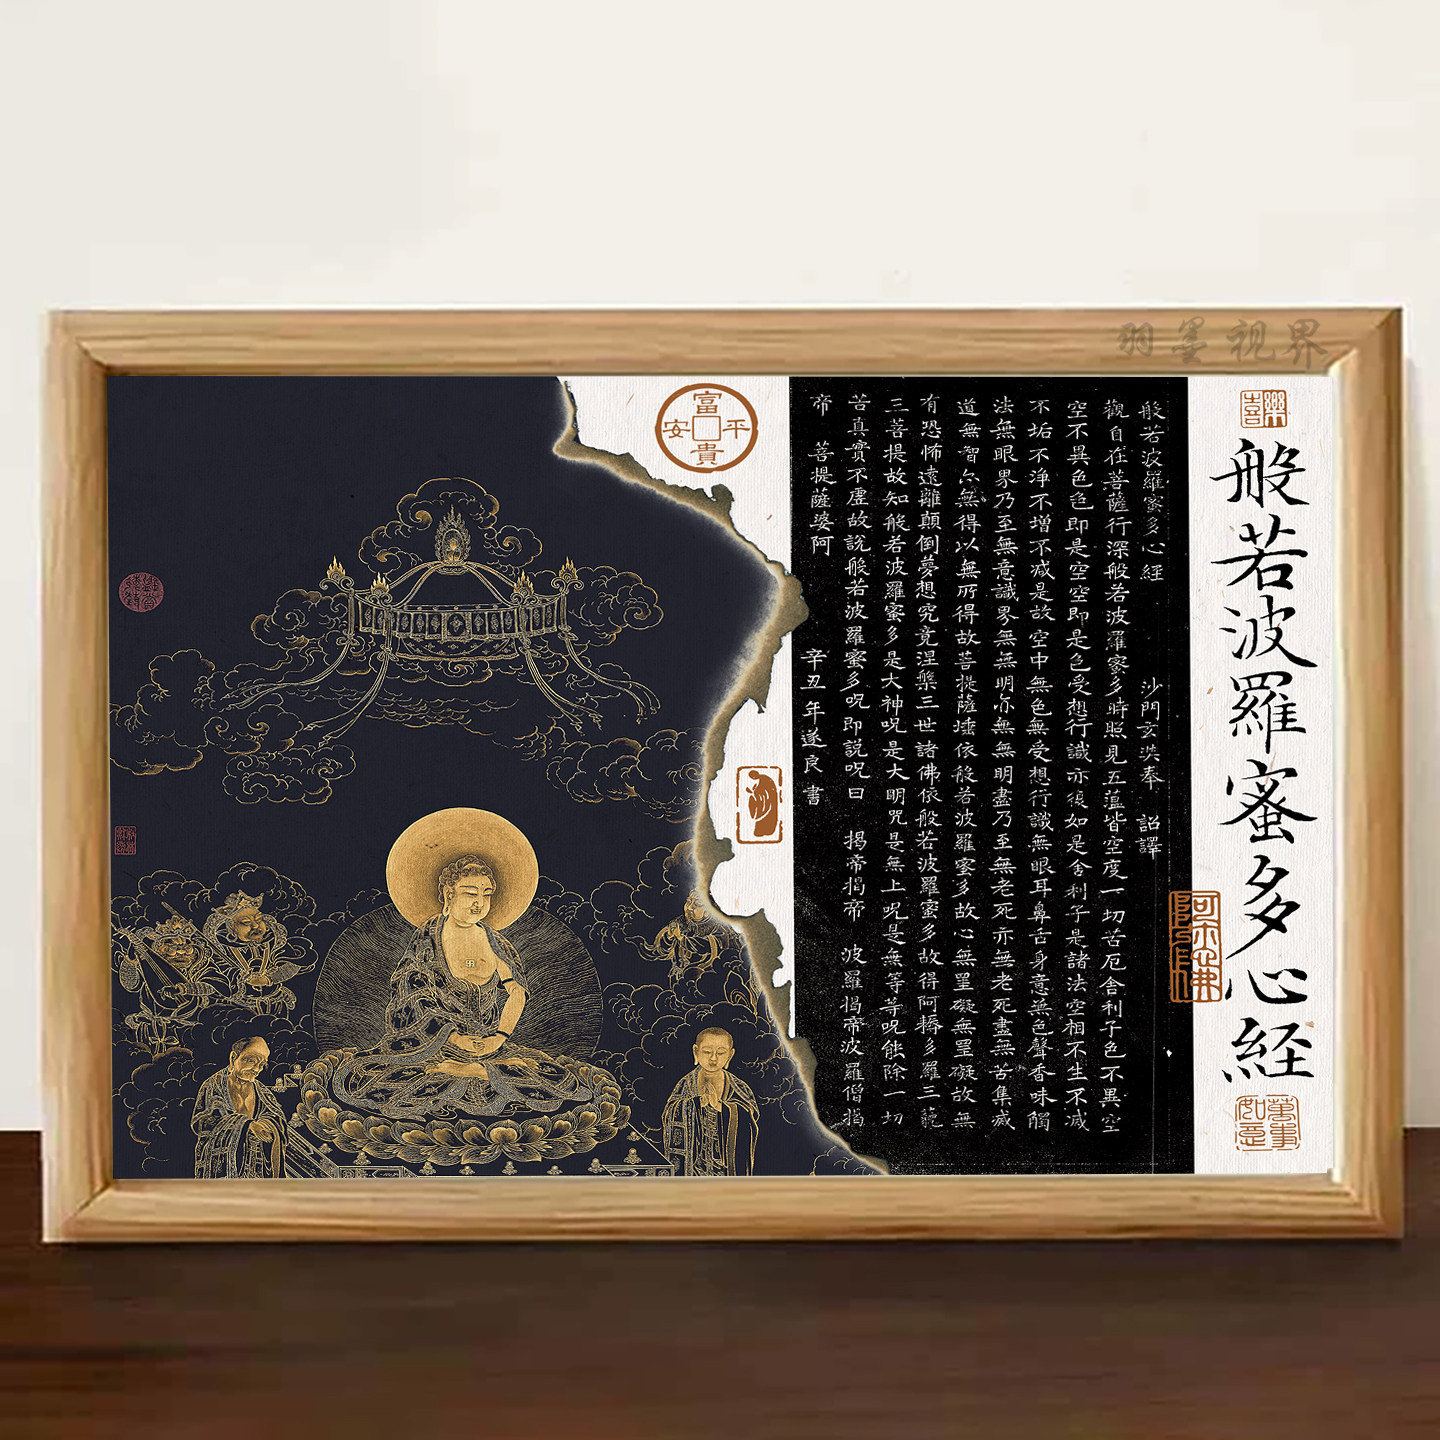 羽墨视界
喜樂
般若波羅蜜多心経
萬事如意
阿弥陀佛
般若波羅蜜多心経 沙門玄奘奉 詔譯
觀自在菩薩行深般若波羅蜜多時照見五蕰皆空度一切苦厄舍利子色不異空
空不異色色即是空空即是色受想行識亦復如是舍利子是諸法空相不生不減
不垢不淨不增不减是故空中無色無受想行識無眼耳鼻舌身意無色聲香味觸
法無眼界乃至無意識界無無明亦無無明盡乃至無老死亦無老死盡無苦集滅
道無智亦無得以無所得故菩提薩埵依般若波羅蜜多故心無罣礙無罣礙故無
有恐怖遠離顛倒夢想究竟涅槃三世諸佛依般若波羅蜜多故得阿耨多羅三藐
三菩提故知般若波羅蜜多是大神呪是大明呪是無上呪是無等等呪能除一切
苦真實不虛故說般若波羅蜜多呪即說呪曰 揭帝揭帝 波羅揭帝波羅僧揭
帝 菩提薩婆阿 辛丑年遂良書
富貴平安